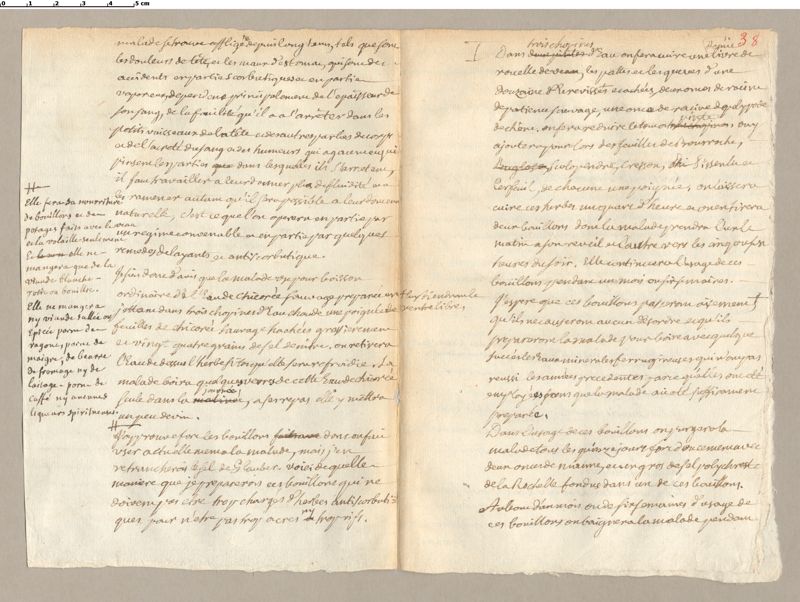 malade se trouve affligée depuis long tems, tels que sont
les douleurs de tête, et les maux d'estomac, qui sont des
accidents en partie scorbutiques et en partie
vaporeux, dependent principalement de l'epaisseur de
son sang, de la facilité qu'il a a s'arrêter dans les
petits vaisseaux de la tête et des autres parties du corps
et de l'acreté du sang et des humeurs qui agacent et qui
les parties dans lesquelles ils s'arretent,
il faut travailler a leur donner plus de fluidité et a
les ramener autant qu'il sera possible a leur douceur
naturelle, c'est ce que l'on operera en partie par
un regime convenable et en partie par quelques
remedes delayants et antiscorbutiques.
Je suis donc d'avis que la malade use pour boisson
ordinaire de l'eau de chicorée sauvage preparée en
jettant dans trois chopines d'eau chaude une poignée de
feuilles de chicorée sauvage hachées grossierement
et vingt quatre grains de sel de nitre, on retirera
l'eau de dessus l'herbe sitôt qu'elle sera refroidie. La
malade boira quelques verres de cette eau de chicorée
seule dans la matinée, a ses repas elle y mettra
un peu de vin.
J'approuve fort les bouillons dont on fait
user actuellement a la malade, mais j'en
retrancherois le sel de Glauber. voici de quelle
maniere que je preparerois ces bouillons qui ne
doivent pas être trop chargés d'herbes antiscorbuti-
ques, pour n'etre pas trop acres ny trop vifs.
Elle fera sa nourriture
de bouillons et de
potages faits avec le veau
et la volaille seulement.
elle ne
mangera que de la
viande blanche
rotie ou bouillie.
Elle ne mangera
ny viande salée ou
Epicée point de
ragoux, point de
maigre, de beurre
de fromage ny de
laitage. point de
caffé ny aucunes
liqueurs spiritueuses.
38
trois chopines
Dans d'eau on fera cuire une livre de
rouelle de veau, les pattes et les queues d'une
douzaine d'Ecrevisses ecachés, deux onces de racine
de patience sauvage, une once de racine de polypode
de chêne, on fera reduire le tout a pinte, on y
ajoutera pour lors des feuilles de bourroche,
scolopendre, cresson, pissenlit et
cerfeuil, de chacune une poignée, on laissera
cuire ces herbes un quart d'heure et on en tirera
deux bouillons dont la malade prendra l'un le
matin a son reveil et l'autre vers les cinq ou six
heures du soir, Elle continuera l'usage de ces
bouillons pendant un mois ou six semaines.
J'espere que ces bouillons passeront aisement
qu'ils ne causeront aucun desordre et qu'ils
prepareront la malade pour boire avec quelque
succés les Eaux minerales ferrugineuses qui n'ont pas
reussi les années precedentes parce qu'elles ont été
employées sans que la malade ait été suffisamment
preparée.
Dans l'usage de ces bouillons on purgera la
malade tous les quinze jours fort doucement avec
deux onces de manne, et un gros de sel polychreste
de la Rochelle fondus dans un de ces bouillons.
Au bout d'un mois ou de six semaines d'usage de
ces bouillons on baignera la malade pendant
et luy tiendront le
ventre libre.